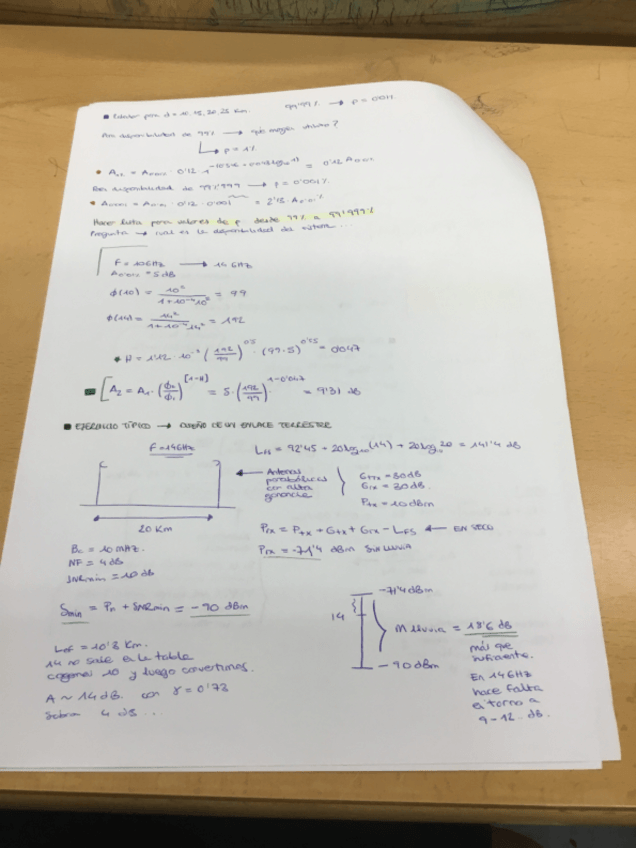 ▪ Calcular para d = 10, 15, 20, 25 Km. 99'99% → p = 0'01%
Para disponibilidad de 99% → qué margen utilizo?
↳ p = 1%
= 0'12 A0'01%
Para disponibilidad de 99'999 → p = 0'001%
= 2'13 · A0'01%
Hacer lista para valores de p desde 99% a 99'999%
Pregunta → cual es la disponibilidad del sistema ...
F = 10GHz → 14GHz
A0'01% = 5dB
ϕ(10) = 10² / (1+10⁻⁴·10²) = 99
ϕ(14) = 14² / (1+10⁻⁴·14²) = 192
• H = 1'12 · 10⁻³ (192/99)^0'5 · (99·5)^0'55 = 0'047
[A2 = A1 · (ϕ2/ϕ1)^[1-H] = 5 · (192/99)^1-0'047 = 9'31 dB
▪ EJERCICIO TÍPICO → DISEÑO DE UN ENLACE TERRESTRE
F = 14GHz
LFS = 92'45 + 20log10(14) + 20log10 20 = 141'4 dB
← Antenas parabólicas con alta ganancia
GTx = 30dB
Grx = 30dB.
Ptx = 10dBm
20 Km
Prx = Ptx + Gtx + Grx - LFS ← EN SECO
Prx = -71'4 dBm SIN LLUVIA
Bc = 10MHz.
NF = 4dB
SNRmin = 10 dB
Smin = Pn + SNRmin = -90 dBm
-71'4dBm
14
M lluvia = 18'6 dB
más que suficiente.
-90dBm
Lef = 10'3 Km.
14 no sale en la tabla
cogemos 10 y luego convertimos.
A ~ 14dB. con γ = 0'73
Sobran 4 dB ...
En 14GHz
hace falta
en torno a
9-12 dB.